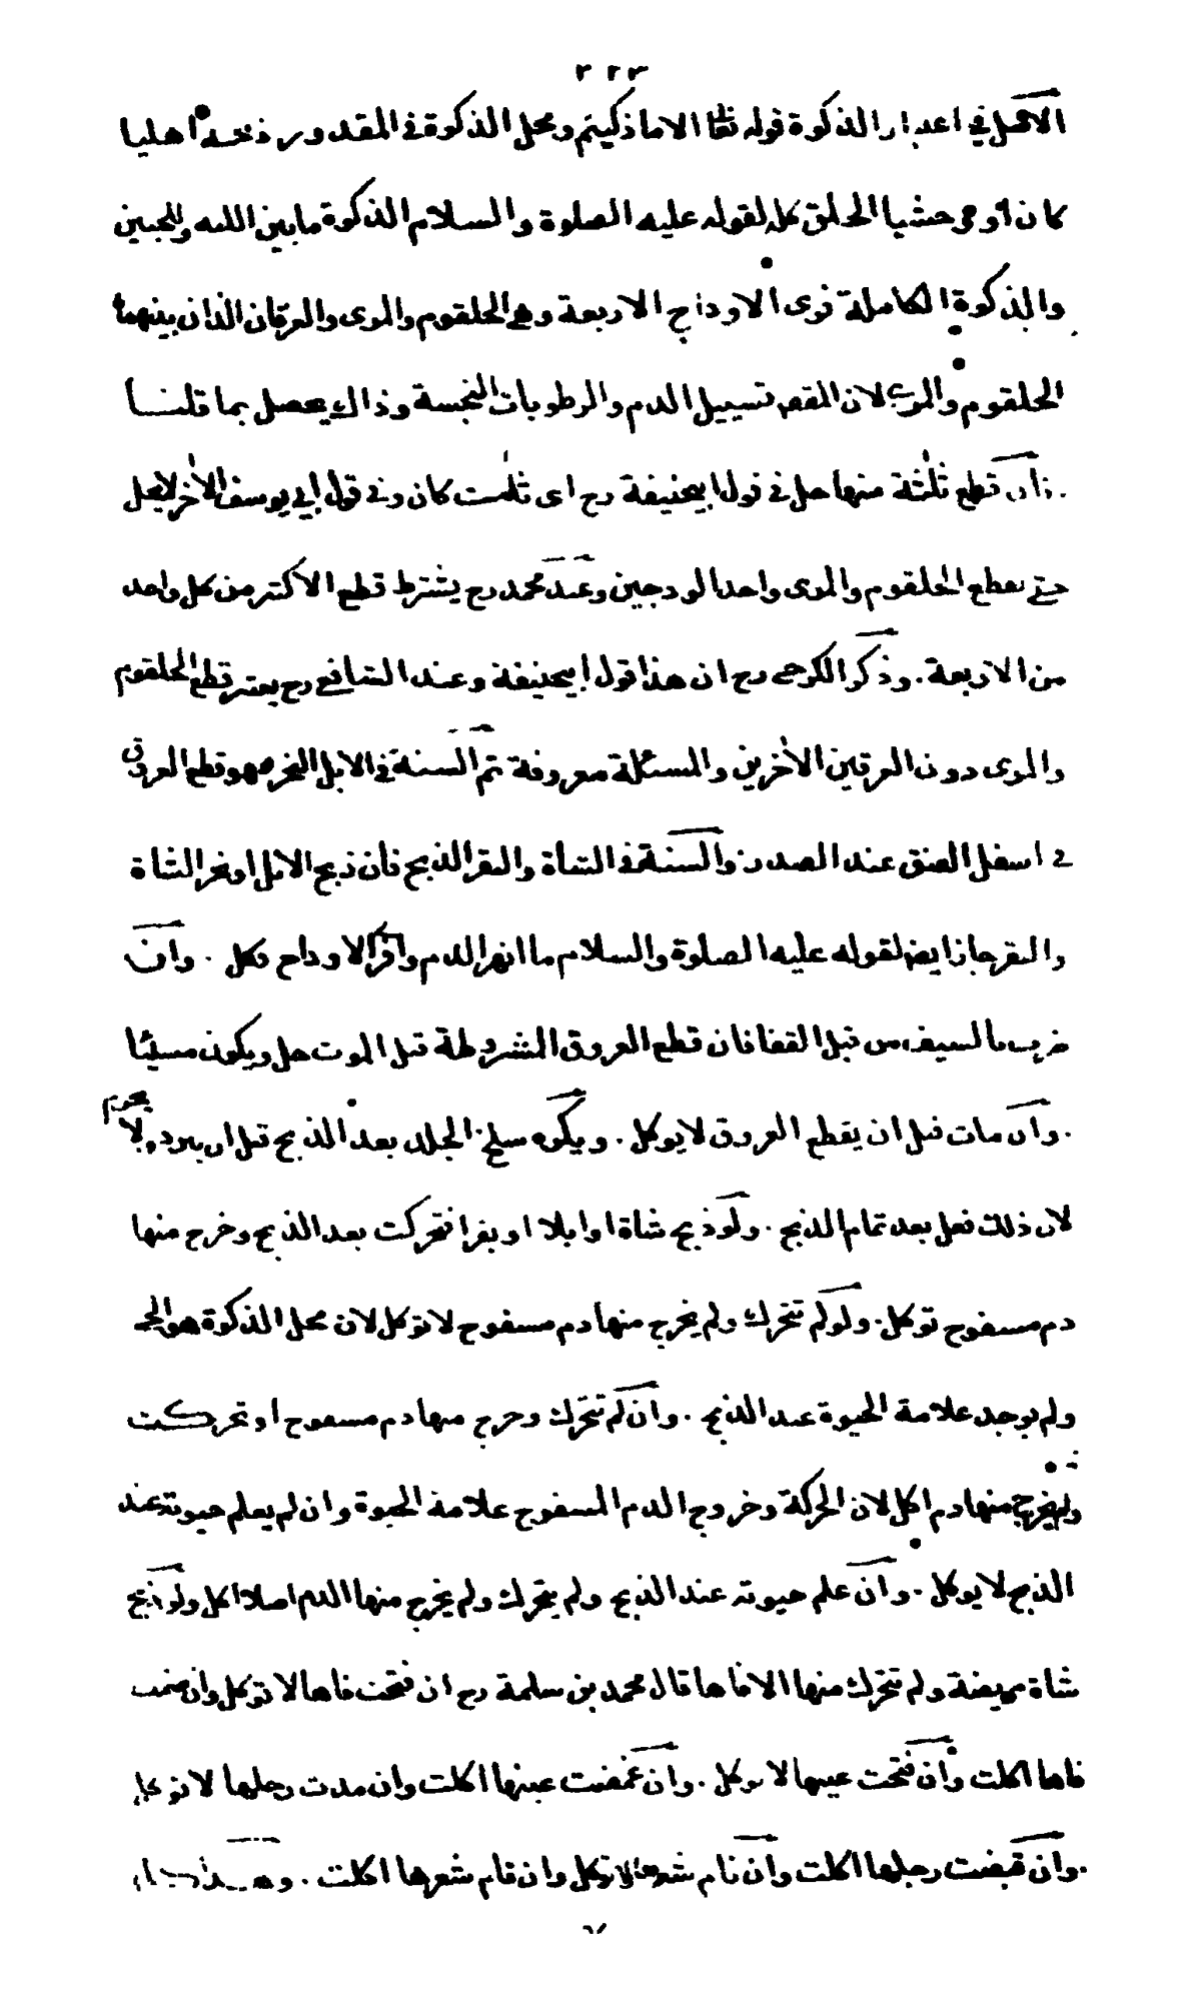 ٢٢٣
الاصل في اعتبار الذكوة قوله تعا الا ما ذكيتم ومحل الذكوة في المقدور ذبحه اهليا
كان او وحشيا الحلق كله لقوله عليه الصلوة والسلام الذكوة ما بين اللبه واللحيين
والذكوة الكاملة فرى الاوداج الاربعة وهي الحلقوم والمرى والعرقان اللذان بينهما
الحلقوم والمرى لان المقصد تسييل الدم والرطوبات النجسة وذلك يحصل بما قلنا
فان قطع ثلثة منها حل في قول ابيحنيفة رح اى ثلث كان وفي قول ابي يوسف الآخر لا يحل
حتى يقطع الحلقوم والمرى واحد الودجين وعند محمد رح يشترط قطع الاكثر من كل واحد
من الاربعة . وذكر الكرخى رح ان هذا قول ابيحنيفة وعند الشافعي رح يعتبر قطع الحلقوم
والمرى دون العرقين الآخرين والمسئلة معروفة ثم السنة في الابل النحر وهو قطع العروق
في اسفل العنق عند الصدر والسنة في الشاة والبقر الذبح فان ذبح الابل او نحر الشاة
والبقر جاز ايضا لقوله عليه الصلوة والسلام ما انهر الدم وافرى الاوداج فكل . وان
ضرب بالسيف من قبل القفا فان قطع العروق المشروطة قبل الموت حل ويكون مسيئا
. وان مات قبل ان يقطع العروق لا يوكل . ويكره سلخ الجلد بعد الذبح قبل ان يبرد ولا يحرم
لان ذلك فعل بعد تمام الذبح . ولو ذبح شاة او ابلا او بقرا فتحركت بعد الذبح وخرج منها
دم مسفوح توكل . ولو لم تتحرك ولم يخرج منها دم مسفوح لا توكل لان محل الذكوة هو الحي
ولم يوجد علامة الحيوة عند الذبح . وان لم تتحرك وخرج منها دم مسفوح او تحركت
ولم يخرج منها دم اكل لان الحركة وخروج الدم المسفوح علامة الحيوة وان لم يعلم حيوته عند
الذبح لا يوكل . وان علم حيوته عند الذبح ولم يتحرك ولم يخرج منها الدم اصلا اكل ولو ذبح
شاة مريضة ولم تتحرك منها الا فاها قال محمد بن سلمة رح ان فتحت فاها لا توكل وان ضمت
فاها اكلت وان فتحت عينها لا توكل . وان غمضت عينها اكلت وان مدت رجلها لا توكل
. وان قبضت رجلها اكلت وان نام شعرها لا توكل وان قام شعرها اكلت .